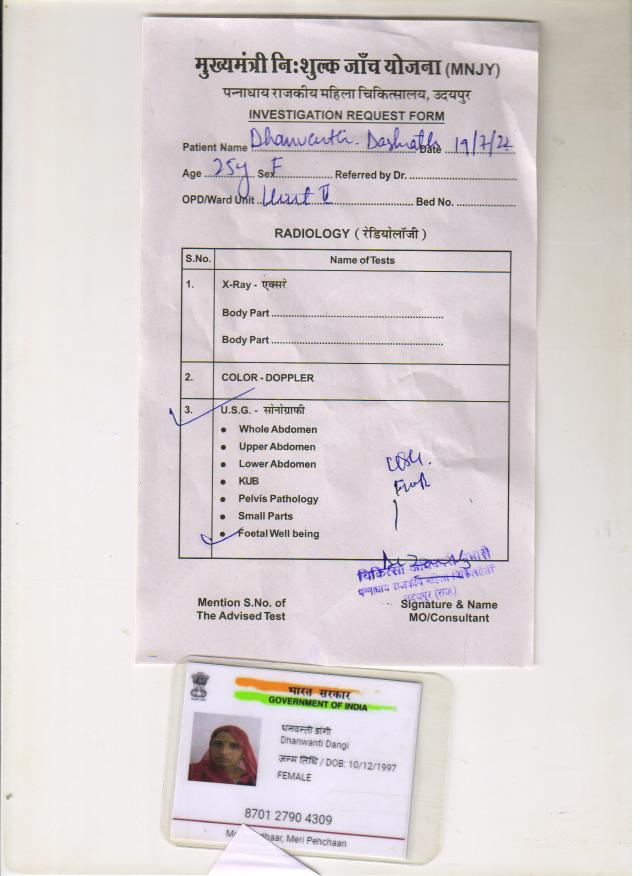 मुख्यमंत्री नि:शुल्क जाँच योजना (MNJY)
पन्नाधाय राजकीय महिला चिकित्सालय, उदयपुर
INVESTIGATION REQUEST FORM
Patient Name Dhanwanti. Dashrath Date 19/7/22
Age 25y Sex F Referred by Dr.
OPD/Ward Unit Unit II Bed No.
RADIOLOGY (रेडियोलॉजी)
S.No. Name of Tests
1. X-Ray - एक्सरे
Body Part
Body Part
2. COLOR - DOPPLER
3. U.S.G. - सोनोग्राफी
Whole Abdomen
Upper Abdomen
Lower Abdomen
KUB
Pelvis Pathology
Small Parts
Foetal Well being
USG.
चिकित्सा अधिकारी प्रभारी
पन्नाधाय राजकीय महिला चिकित्सालय
उदयपुर (राज.)
Mention S.No. of
The Advised Test
Signature & Name
MO/Consultant
भारत सरकार
GOVERNMENT OF INDIA
धनवन्ती डांगी
Dhanwanti Dangi
जन्म तिथि / DOB: 10/12/1997
FEMALE
8701 2790 4309
Meri Pehchaan